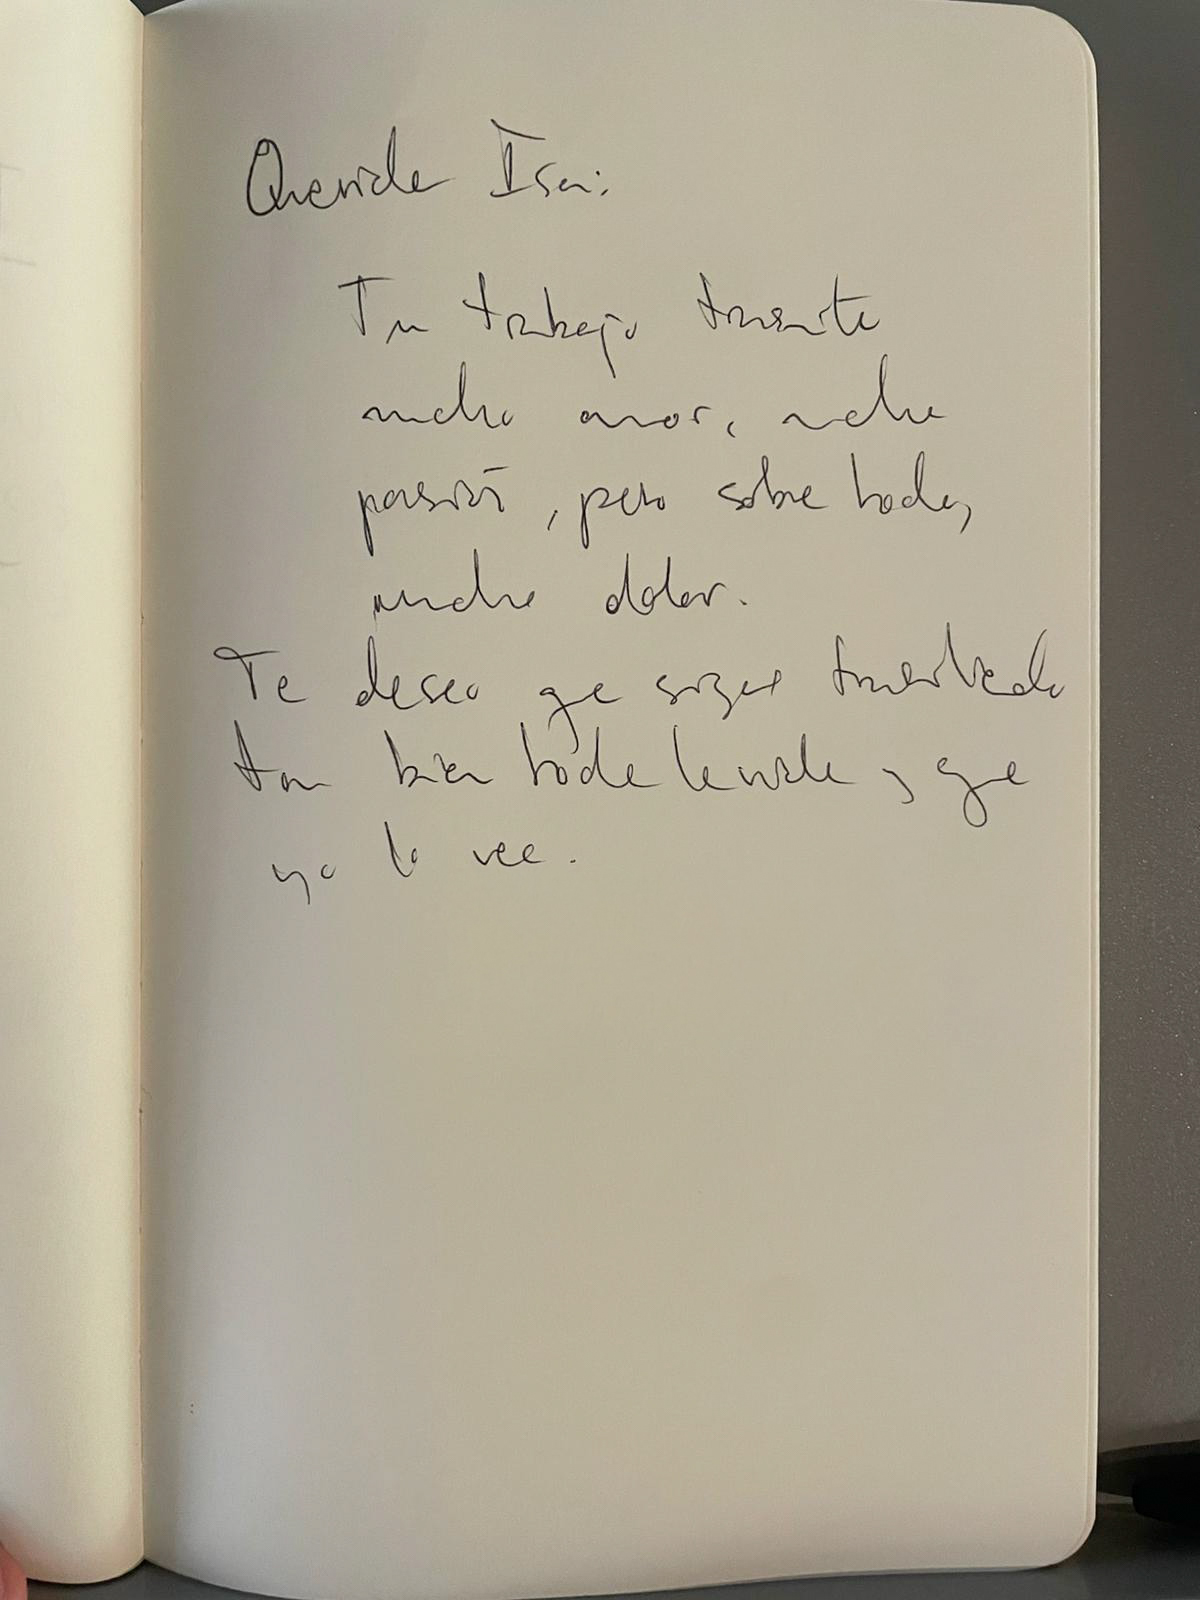 Querida Isa:
Tu trabajo transmite
mucho amor, mucha
pasión, pero sobre todo,
mucho dolor.
Te deseo que sigas transmitiendo
tan bien toda la vida y que
yo lo vea.